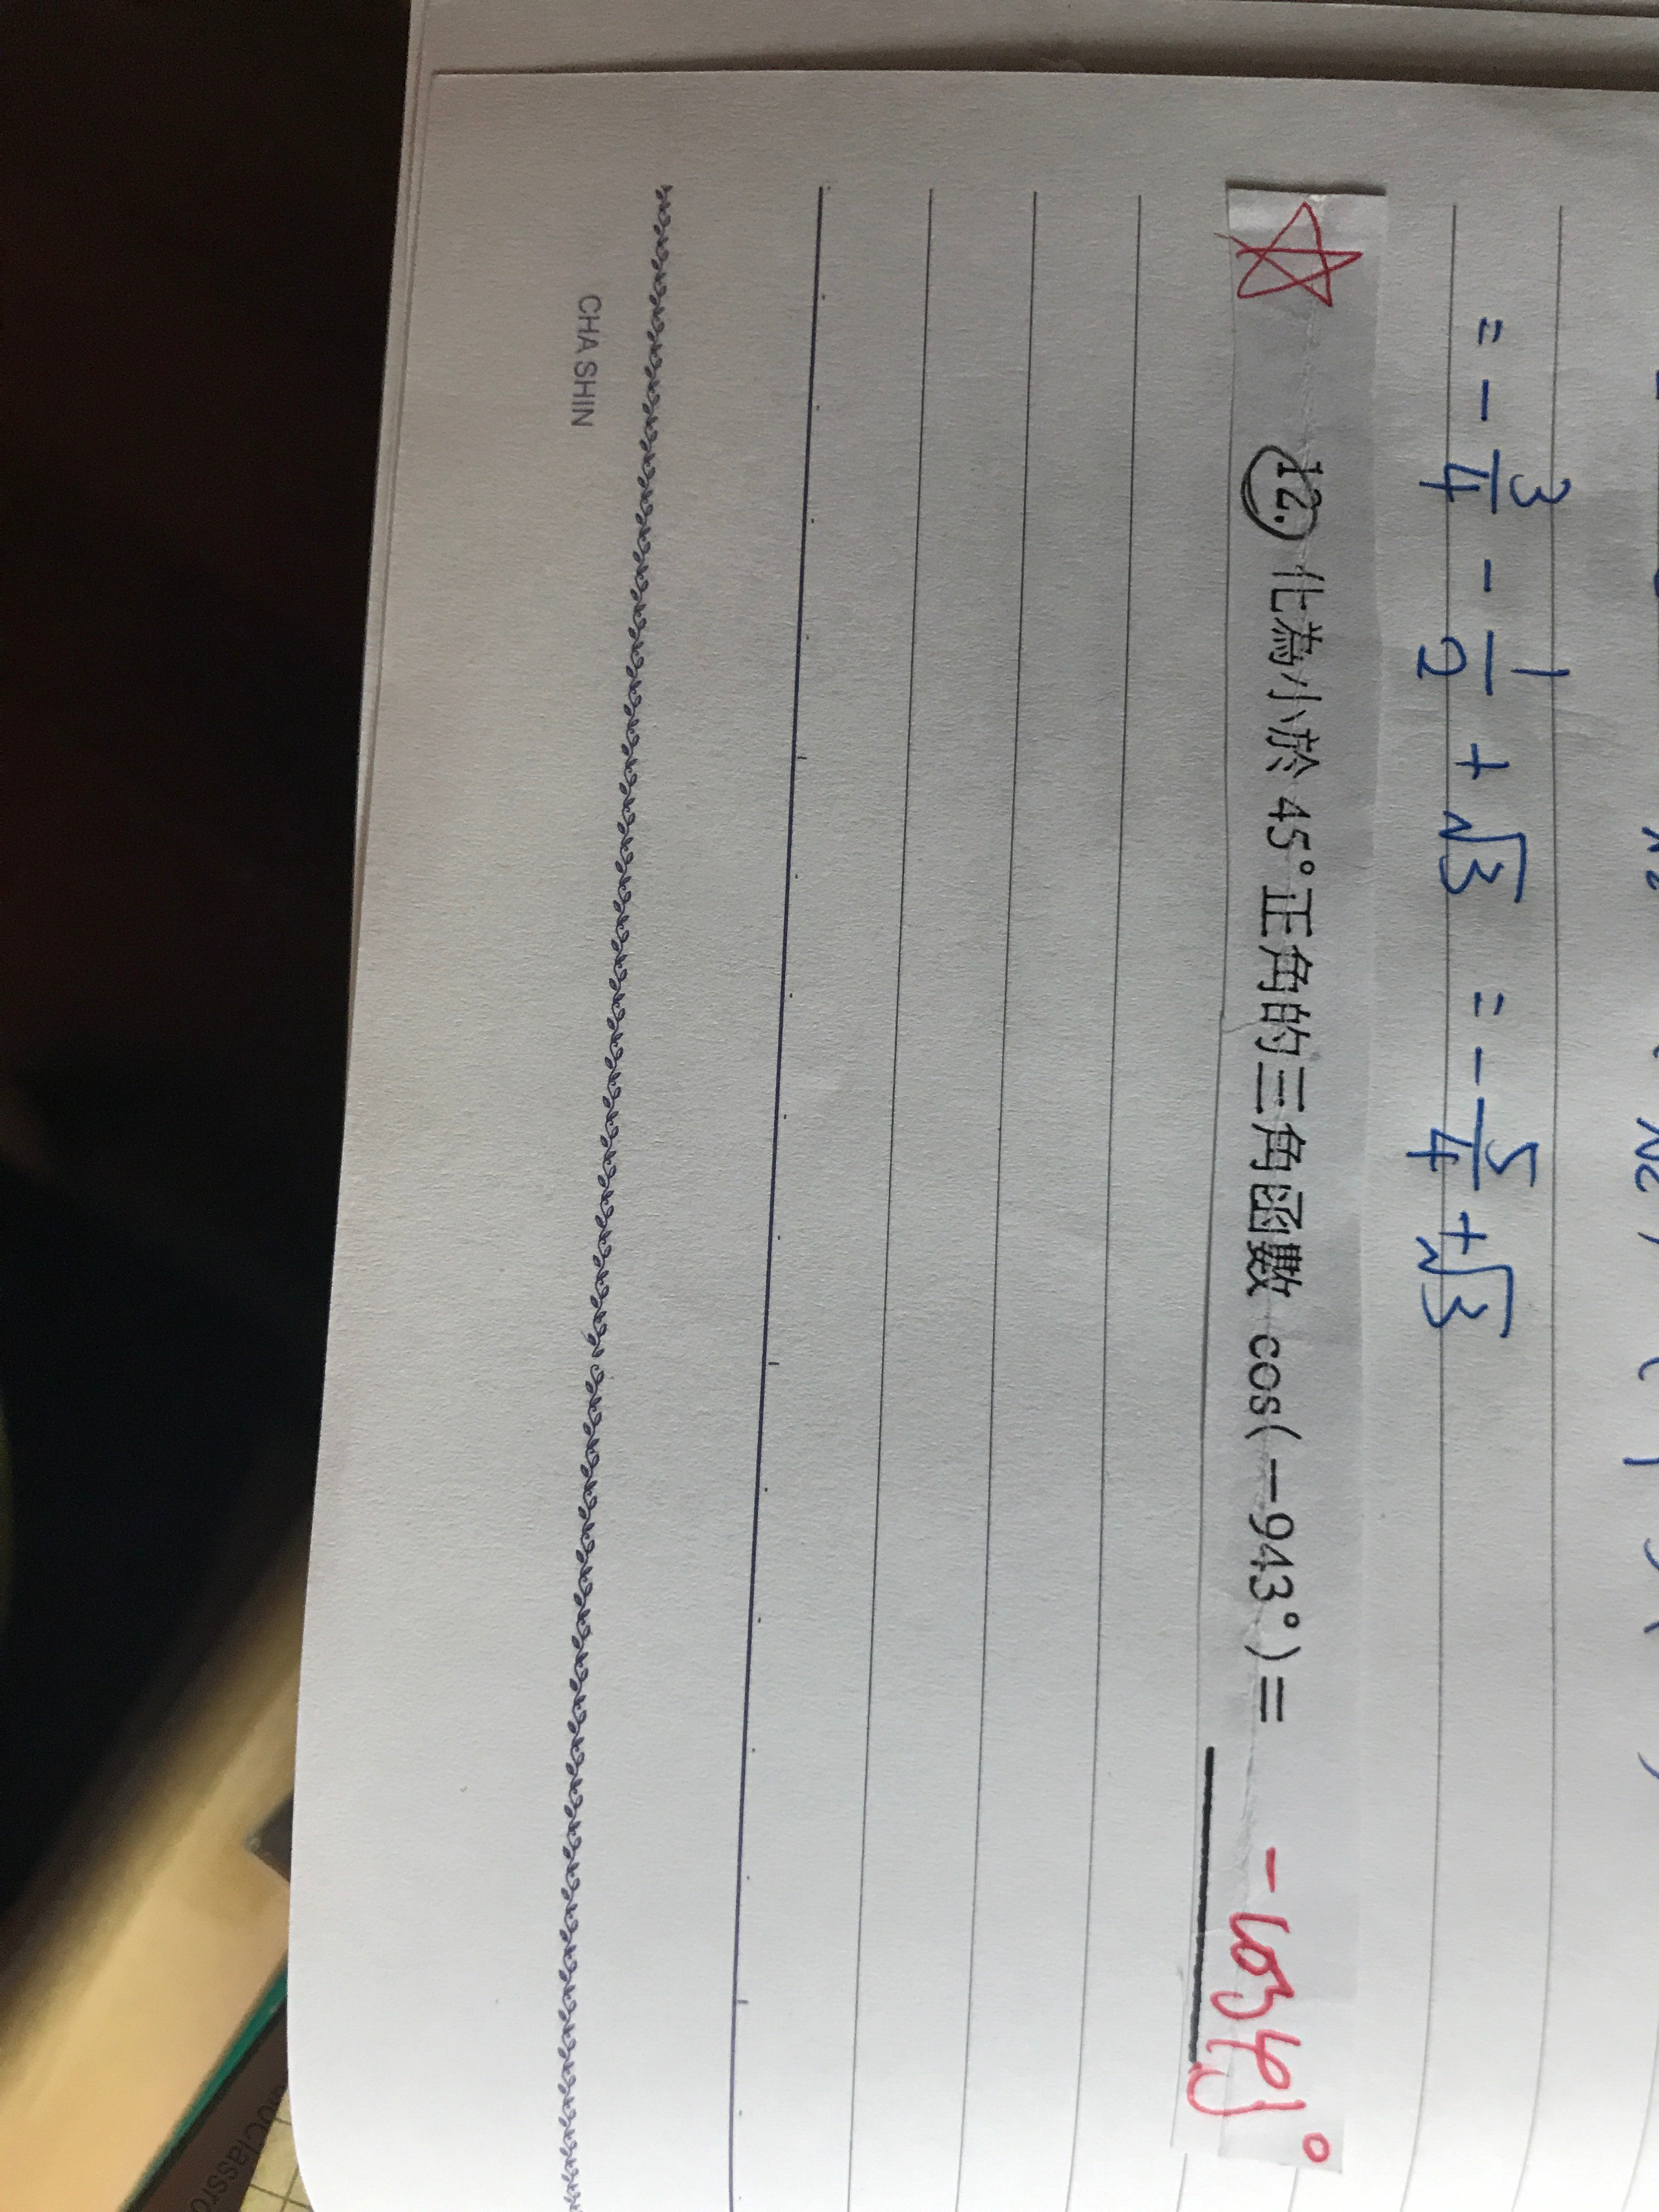 = - 3/4 - 1/2 + √3 = - 5/4 + √3
12. 化為小於 45°正角的三角函數 cos(-943°)= -cos43°
CHA SHIN